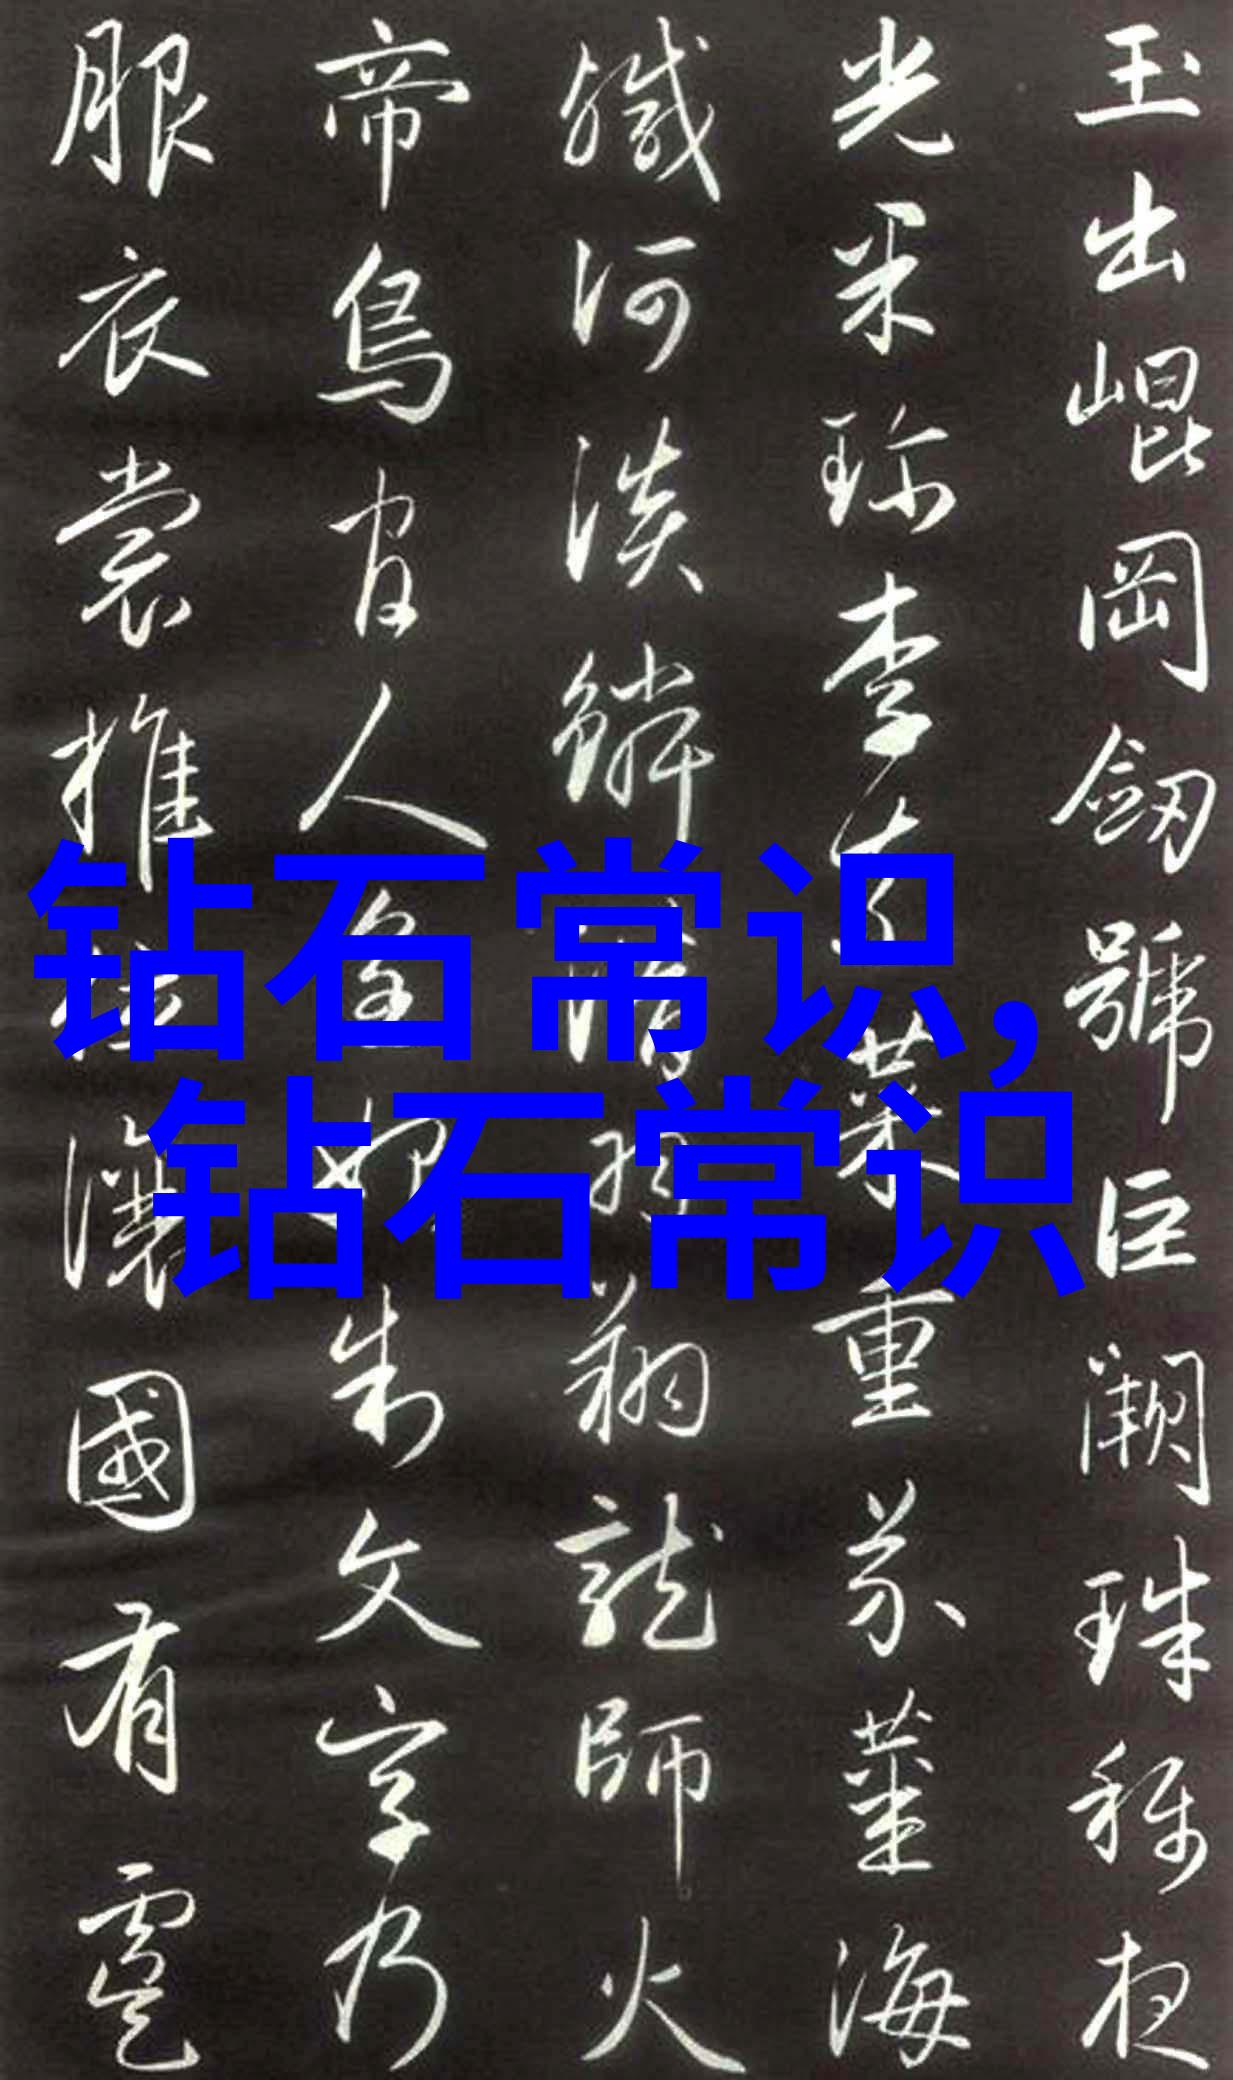 玉出崐岡劔號巨闕珠称夜
光果珎李柰菜重芥薑海
醎河淡鱗潜羽翔龍師火
帝鳥官人皇始制文字乃
服衣裳推位讓國有虞
钻石常识,
钻石常识